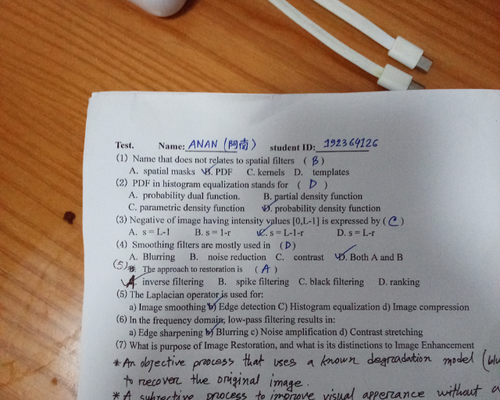 Test. Name: ANAN (阿南) student ID: 192364126
(1) Name that does not relates to spatial filters (B)
A. spatial masks B. PDF C. kernels D. templates
(2) PDF in histogram equalization stands for (D)
A. probability dual function. B. partial density function
C. parametric density function D. probability density function
(3) Negative of image having intensity values [0,L-1] is expressed by (C)
A. s = L-1 B. s = 1-r C. s = L-1-r D. s = L-r
(4) Smoothing filters are mostly used in (D)
A. Blurring B. noise reduction C. contrast D. Both A and B
(5) The approach to restoration is (A)
A inverse filtering B. spike filtering C. black filtering D. ranking
(5) The Laplacian operator is used for:
a) Image smoothing b) Edge detection C) Histogram equalization d) Image compression
(6) In the frequency domain, low-pass filtering results in:
a) Edge sharpening b) Blurring c) Noise amplification d) Contrast stretching
(7) What is purpose of Image Restoration, and what is its distinctions to Image Enhancement
* An objective process that uses a known degradation model (blu
to recover the original image.
* A subjective process to improve visual apperance without